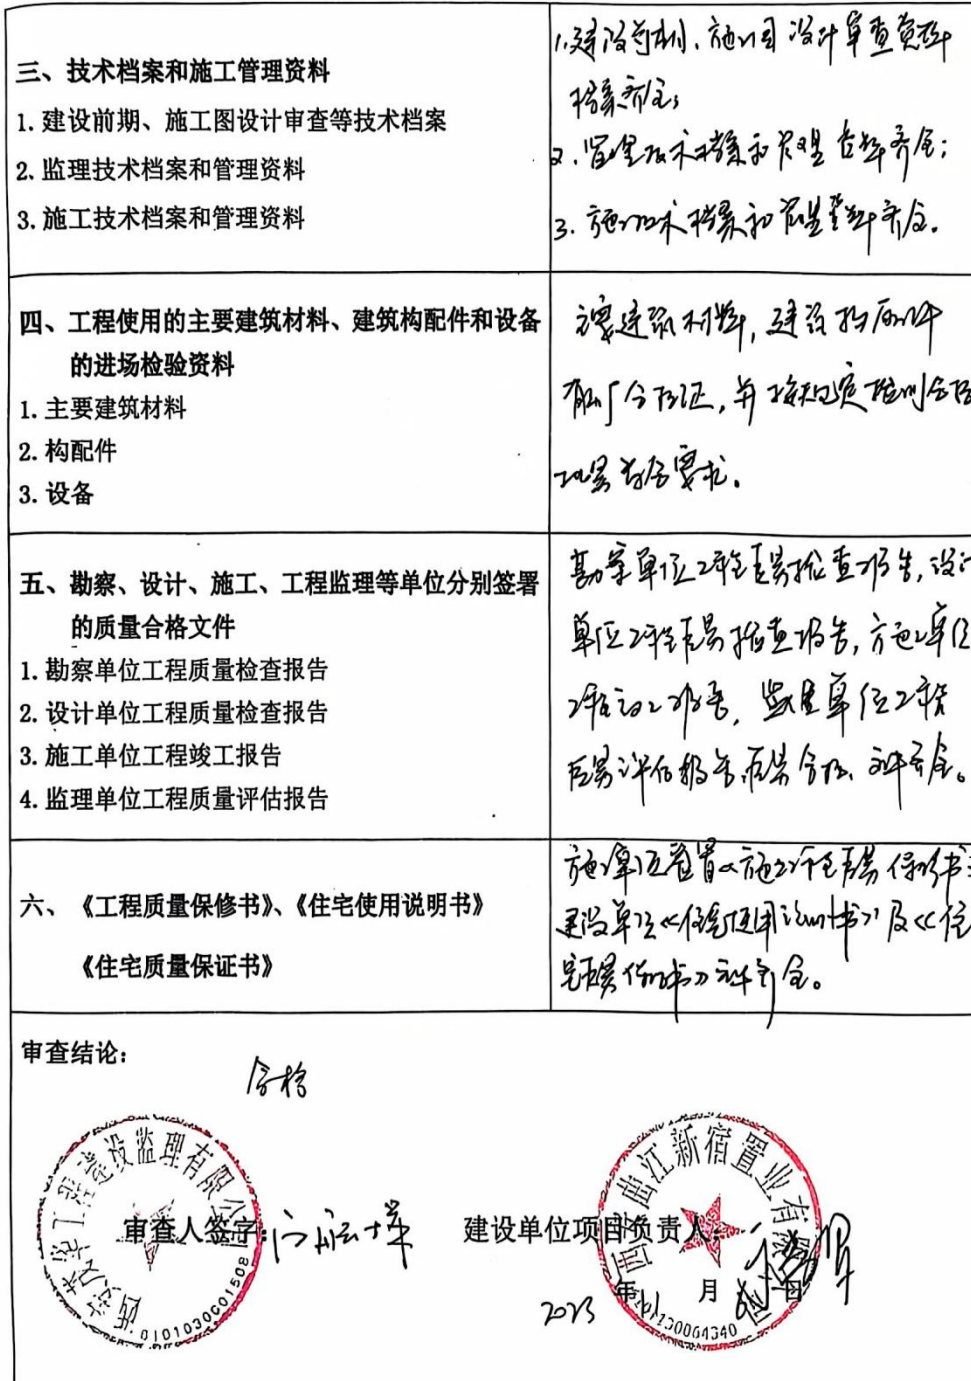 三、技术档案和施工管理资料
1. 建设前期、施工图设计审查等技术档案
2. 监理技术档案和管理资料
3. 施工技术档案和管理资料
1.建设前期、施工图设计审查资料
档案齐全;
2.监理技术档案和管理资料齐全;
3.施工技术档案和管理资料齐全。
四、工程使用的主要建筑材料、建筑构配件和设备
的进场检验资料
1. 主要建筑材料
2. 构配件
3. 设备
主要建筑材料,建筑构配件
有出厂合格证,并按规定检测合格
要求。
五、勘察、设计、施工、工程监理等单位分别签署
的质量合格文件
1. 勘察单位工程质量检查报告
2. 设计单位工程质量检查报告
3. 施工单位工程竣工报告
4. 监理单位工程质量评估报告
勘察单位工程质量检查报告,设计
单位工程质量检查报告,施工单位
工程竣工报告,监理单位工程
质量评估报告,质量合格、文件齐全。
六、《工程质量保修书》、《住宅使用说明书》
《住宅质量保证书》
施工单位签署《施工工程质量保修书》
建设单位《住宅使用说明书》及《住
宅质量保证书》文件齐全。
审查结论:
合格
审查人签字:
建设单位项目负责人:
2023年11月 日
工程建设监理有限公司
6101030001508
西安曲江新宿置业有限公司